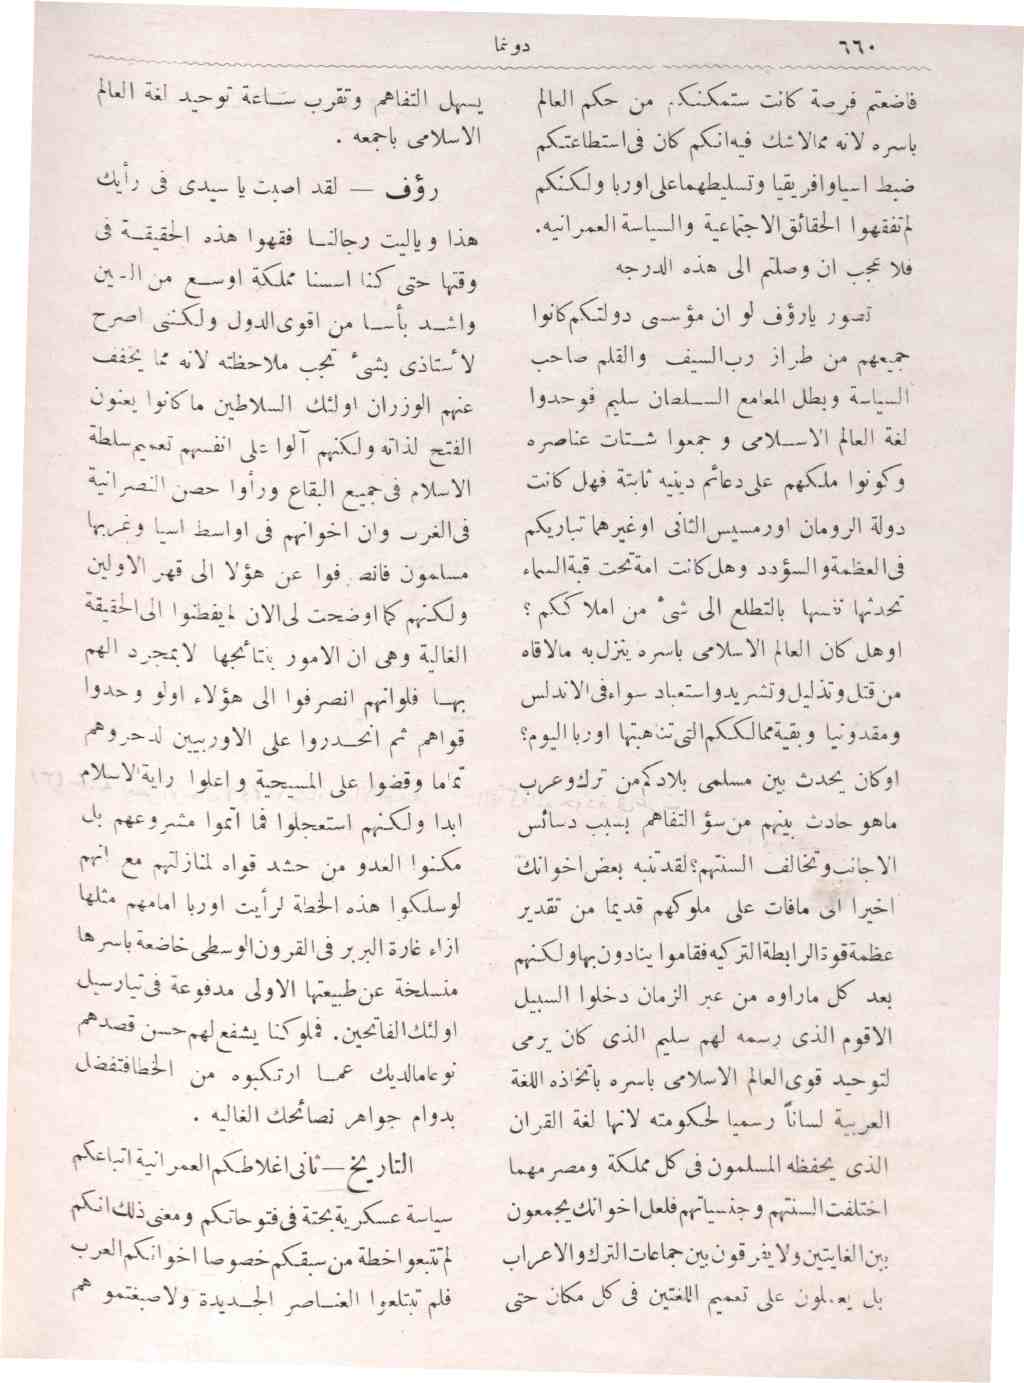 ٦٦٠
دونما
فاضعتم فرصة كانت ستمكنكم من حكم العالم
باسره لانه ممالاشك فيه انكم كان فى استطاعتكم
ضبط اسيا وافريقيا وتسليطهما على اوربا ولكنكم
لم تفقهوا الحقائق الاجتماعية والسياسة العمرانيه.
فلا عجب ان وصلتم الى هذه الدرجه
تصور يارؤف لو ان مؤسسى دولتكم كانوا
جميعهم من طراز رب السيف والقلم صاحب
السياسة وبطل المعامع السلطان سليم فوحدوا
لغة العالم الاسلامى و جمعوا شتات عناصره
وكونوا ملكهم على دعائم دينيه ثابتة فهل كانت
دولة الرومان اورمسيس الثانى اوغيرهما تباريكم
فى العظمة والسؤدد وهل كانت امة تحت قبة السماء
تحدثها نفسها بالتطلع الى شئ من املاككم ؟
اوهل كان العالم الاسلامى باسره ينزل به مالاقاه
من قتل وتذليل وتشريد واستعباد سواء فى الاندلس
ومقدونيا وبقية ممالككم التى تناهبتها اوربا اليوم؟
اوكان يحدث بين مسلمى بلادكم من ترك وعرب
ماهو حادث بينهم من سؤ التفاهم بسبب دسائس
الاجانب وتخالف السنتهم؟ لقد تنبه بعض اخوانك
اخيرا الى مافات على ملوكهم قديما من تقدير
عظمة قوة الرابطة التركيه فقاموا ينادون بها ولكنهم
بعد كل ماراوه من عبر الزمان دخلوا السبيل
الاقوم الذى رسمه لهم سليم الذى كان يرمى
لتوحيد قوى العالم الاسلامى باسره باتخاذه اللغة
العربية لساناً رسميا لحكومته لانها لغة القران
الذى يحفظه المسلمون فى كل مملكة ومصر مهما
اختلفت السنتهم وجنسياتهم فلعل اخوانك يجمعون
بين الغايتين ولا يفرقون بين جماعات الترك والاعراب
بل يعملون على تعميم اللغتين فى كل مكان حتى
يسهل التفاهم وتقرب ساعة توحيد لغة العالم
الاسلامى باجمعه .
رؤف — لقد اصبت يا سيدى فى رأيك
هذا وياليت رجالنا فقهوا هذه الحقيقة فى
وقتها حتى كنا اسسنا مملكة اوسع من الصين
واشد بأسا من اقوى الدول ولكننى اصرح
لأستاذى بشئ تجب ملاحظته لانه مما يخفف
عنهم الوزر ان اولئك السلاطين ماكانوا يعنون
الفتح لذاته ولكنهم آلوا على انفسهم تعميم سلطة
الاسلام فى جميع البقاع ورأوا حصن النصرانية
فى الغرب وان اخوانهم فى اواسط اسيا وغربها
مسلمون فانصرفوا عن هؤلا الى قهر الاولين
ولكنهم كما اوضحت لى الان لم يفطنوا الى الحقيقة
الغالية وهى ان الامور بنتائجها لابمجرد الهم
بها فلوانهم انصرفوا الى هؤلاء اولو وحدوا
قواهم ثم انحدروا على الاوربيين لدحروهم
تماما وقضوا على المسيحية واعلوا راية الاسلام
ابدا ولكنهم استعجلوا فما اتموا مشروعهم بل
مكنوا العدو من حشد قواه لمنازلتهم مع انهم
لوسلكوا هذه الخطة لرأيت اوربا امامهم مثلها
ازاء غارة البربر فى القرون الوسطى خاضعة باسرها
منسلخة عن طبيعتها الاولى مدفوعة فى تيار سيل
اولئك الفاتحين. فملوكنا يشفع لهم حسن قصدهم
نوعا مالديك عما ارتكبوه من الخطا فتفضل
بدوام جواهر نصائحك الغاليه .
التاريخ — ثانى اغلاطكم العمرانية اتباعكم
سياسة عسكرية بحتة فى فتوحاتكم ومعنى ذلك انكم
لم تتبعوا خطة من سبقكم خصوصا اخوانكم العرب
فلم تبتلعوا العناصر الجديدة ولا صبغتمو هم